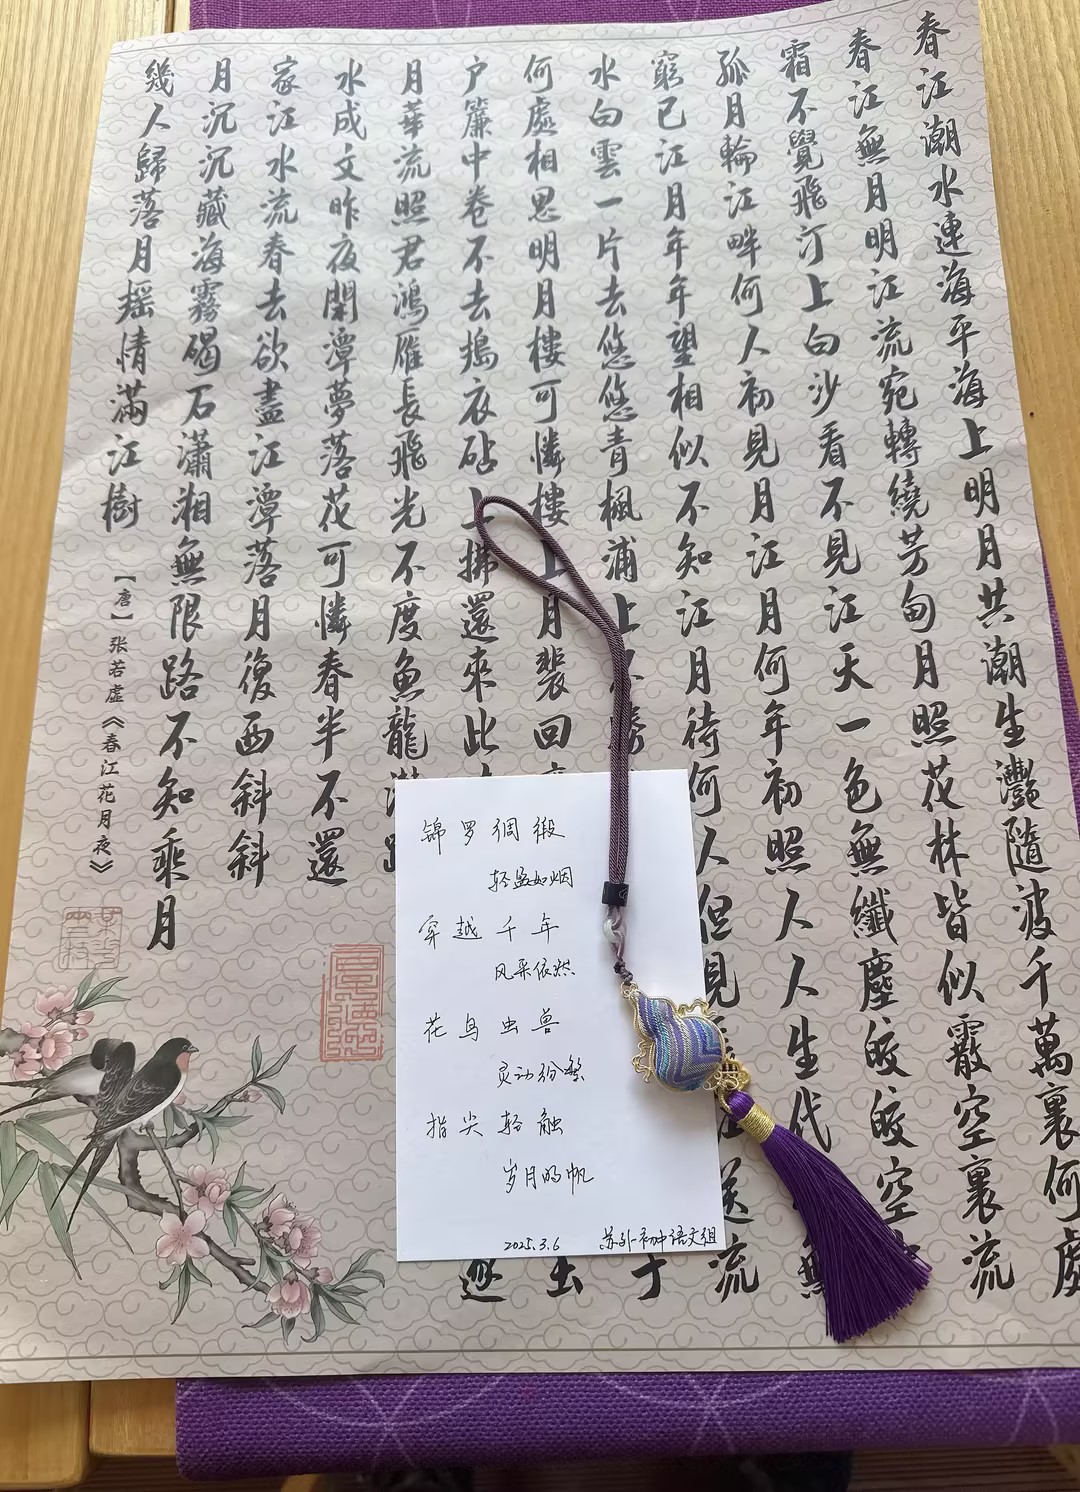 春江潮水連海平海上明月共潮生灩隨波千萬裏何處
春江無月明江流宛轉繞芳甸月照花林皆似霰空裏流
霜不覺飛汀上白沙看不見江天一色無纖塵皎皎空
孤月輪江畔何人初見月江月何年初照人人生代無
窮已江月年年望相似不知江月待何人但見送流
水白雲一片去悠悠青楓浦上不勝子
何處相思明月樓可憐樓上月裴回玉
户簾中卷不去搗衣砧上拂還來此逐
月華流照君鴻雁長飛光不度魚龍潛躍
水成文昨夜閑潭夢落花可憐春半不還
家江水流春去欲盡江潭落月復西斜斜
月沉沉藏海霧碣石瀟湘無限路不知乘月
幾人歸落月摇情滿江樹
【唐】张若虚《春江花月夜》
锦罗绸缎
轻盈如烟
穿越千年
风采依然
花鸟虫兽
灵动纷繁
指尖轻触
岁月的帆
2025.3.6 苏外初中语文组